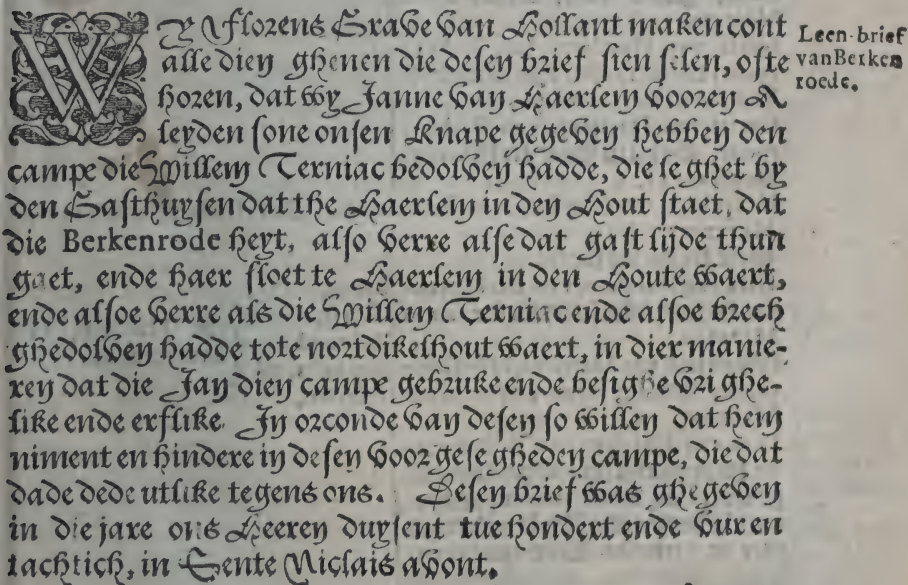 WY Florens Grave van Hollant maken cont
alle dien ghenen die desen brief sien selen, ofte
horen, dat wy Janne van Haerlem vooren A
leyden sone onsen Knape gegeven hebben den
campe die Willem Terniac bedolven hadde, die leghet by
den Gasthuysen dat the Haerlem in den Hout staet, dat
die Berkenrode heyt, also verre alse dat gastlijde thun
gaet, ende haer sloet te Haerlem in den Houte waert,
ende alsoe verre als die Willem Terniac ende alsoe brech
ghedolven hadde tote nortdikelhout waert, in dier manie-
ren dat die Jan dien campe gebruke ende besighe vri ghe-
like ende erflike. In orconde van desen so willen dat hem
niment en hindere in desen voorgesegheden campe, die dat
dade dede utlike tegens ons. Desen brief was ghegeven
in die jare ons Heeren duysent tue hondert ende vur en
tachtich, in Sente Niclais avont.
Leen-brief
van Berken
roede.